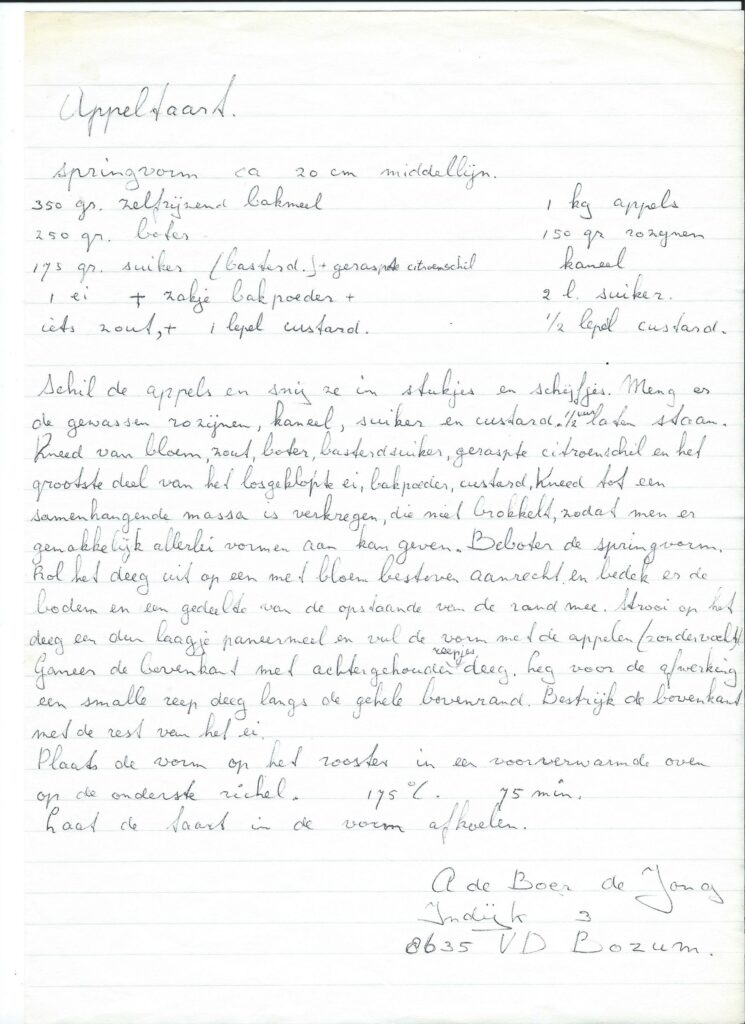 Appeltaart.
springvorm ca 20 cm middellijn.
350 gr. zelfrijzend bakmeel 1 kg appels
250 gr. boter 150 gr rozijnen
175 gr. suiker (basterd.) + geraspte citroenschil kaneel
1 ei + zakje bakpoeder + 2 l. suiker.
iets zout, + 1 lepel custard. 1/2 lepel custard.
Schil de appels en snij ze in stukjes en schijfjes. Meng er
de gewassen rozijnen, kaneel, suiker en custard. 1/2 uur laten staan.
Kneed van bloem, zout, boter, basterdsuiker, geraspte citroenschil en het
grootste deel van het losgeklopte ei, bakpoeder, custard, Kneed tot een
samenhangende massa is verkregen, die niet brokkelt, zodat men er
gemakkelijk allerlei vormen aan kan geven. Beboter de springvorm.
Rol het deeg uit op een met bloem bestoven aanrecht en bedek er de
bodem en een gedeelte van de opstaande van de rand mee. Strooi op het
deeg een dun laagje paneermeel en vul de vorm met de appelen (zonder vocht)
Garneer de bovenkant met achtergehouden reepjes deeg. Leg voor de afwerking
een smalle reep deeg langs de gehele bovenrand. Bestrijk de bovenkant
met de rest van het ei.
Plaats de vorm op het rooster in een voorverwarmde oven
op de onderste richel. 175 °C. 75 min.
Laat de taart in de vorm afkoelen.
A de Boer de Jong
Indijk 3
8635 VD Bozum.